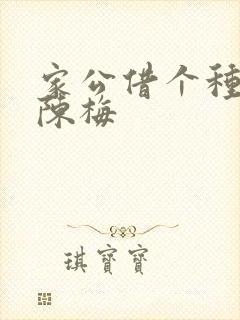 家公借个种
陈梅
琪寶寶